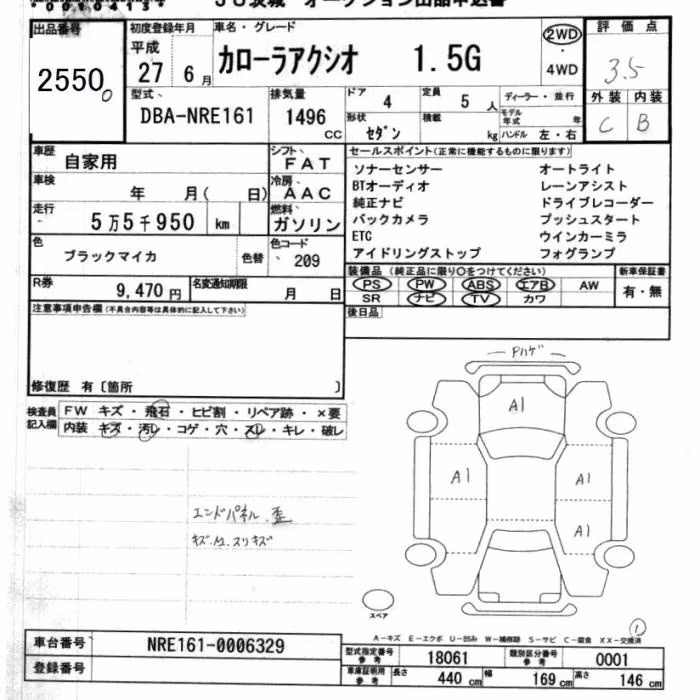 JU茨城 オークション出品申込書
出品番号
2550
初度登録年月
平成
27年6月
車名・グレード
カローラアクシオ 1.5G
2WD
・
4WD
評価点
3.5
外装 内装
C B
型式
DBA-NRE161
排気量
1496
CC
ドア 4
定員 5人
ディーラー・並行
形状
セダン
積載 kg
モデル年式 年
ハンドル 左・右
車歴
自家用
シフト
FAT
車検
年 月( 日)
冷房
AAC
走行
5万5千950 km
燃料
ガソリン
色
ブラックマイカ
色替
色コード
209
R券
9,470円
名変通知期限
月 日
セールスポイント(正常に機能するものに限ります)
ソナーセンサー オートライト
BTオーディオ レーンアシスト
純正ナビ ドライブレコーダー
バックカメラ プッシュスタート
ETC ウインカーミラ
アイドリングストップ フォグランプ
装備品(純正品に限り○をつけてください)
PS PW ABS エアB AW
SR ナビ TV カワ
新車保証書
有・無
後日品
注意事項申告欄(不具合内容等は具体的に記入して下さい)
修復歴 有〔箇所 〕
検査員記入欄
FW キズ・飛石・ヒビ割・リペア跡・×要
内装 キズ・汚レ・コゲ・穴・スレ・キレ・破レ
エンドパネル歪
キズ・A1・スリキズ
Pハゲ
A1
A1
A1
A1
スペア
A-キズ E-エクボ U-凹み W-補修跡 S-サビ C-腐食 XX-交換済
1
車台番号
NRE161-0006329
登録番号
型式指定番号
参考
18061
類別区分番号
参考
0001
車庫証明用
参考
長さ 440 cm 幅 169 cm 高さ 146 cm